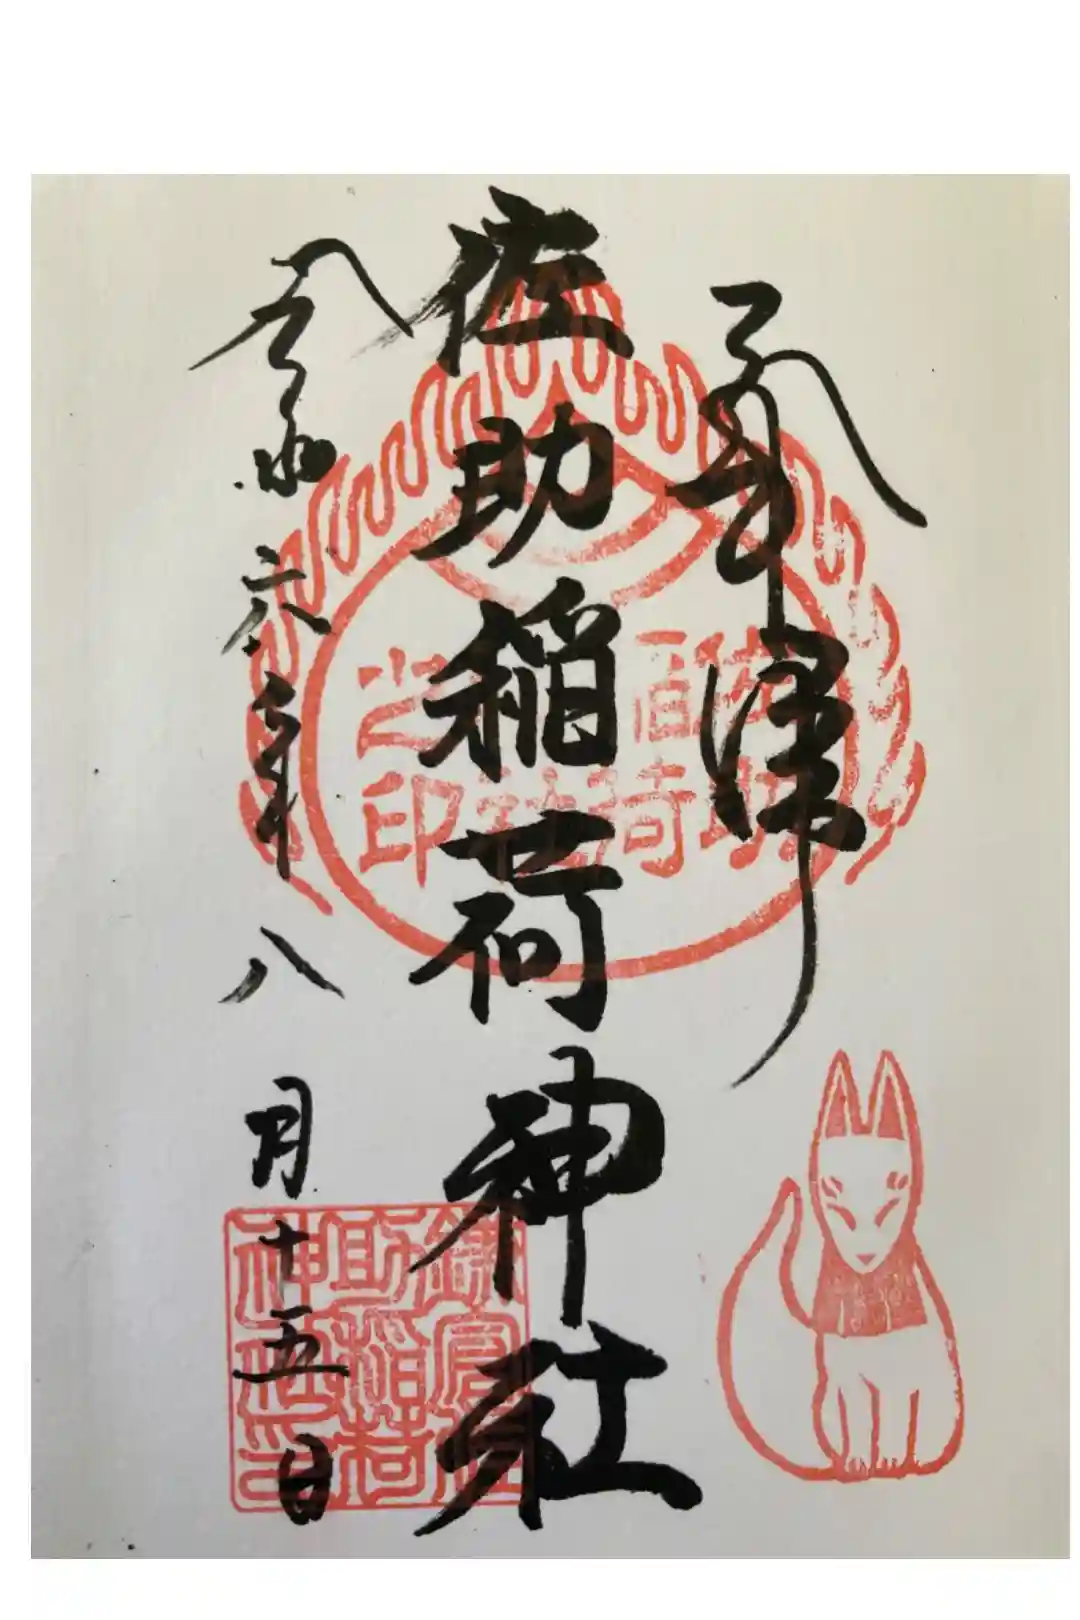 佐助稲荷神社
令和六年八月十五日
佐助
稲荷
神社
之印
鎌倉佐
助稲荷
神社之印